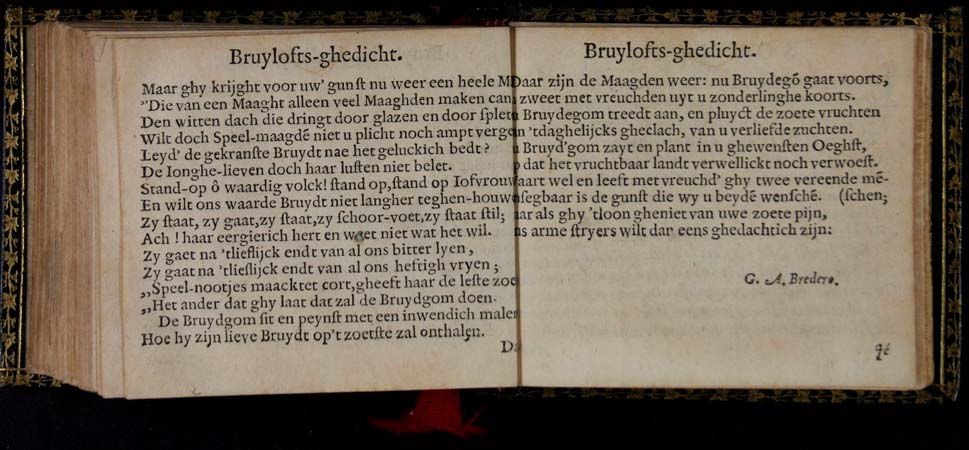 Bruylofts-ghedicht.
Maar ghy krijght voor uw' gunſt nu weer een heele M
,,'Die van een Maaght alleen veel Maaghden maken can
Den witten dach die dringt door glazen en door
Wilt doch Speel-maagdē niet u plicht noch ampt
Leyd' de gekranſte Bruydt nae het geluckich bedt?
De Ionghe-lieven doch haar luſten niet belet.
Stand-op ô waardig volck! ſtand op, ſtand op
En wilt ons waarde Bruydt niet langher
Zy ſtaat, zy gaat, zy ſtaat, zy ſchoor-voet, zy ſtaat ſtil;
Ach ! haar eergierich hert en weet niet wat het wil.
Zy gaet na 'tlieflijck endt van al ons bitter lyen,
Zy gaat na 'tlieflijck endt van al ons heftigh vryen;
,,Speel-nootjes maacktet cort, gheeft haar de leſte
,,Het ander dat ghy laat dat zal de Bruydgom doen.
De Bruydgom ſit en peynſt met een inwendich
Hoe hy zijn lieve Bruydt op't zoetſte zal onthalen.
D
Bruylofts-ghedicht.
Daar zijn de Maagden weer: nu Bruydegō gaat voorts,
zweet met vreuchden uyt u zonderlinghe koorts.
Bruydegom treedt aan, en pluyct de zoete vruchten
'tdaghelijcks gheclach, van u verliefde zuchten.
Bruyd'gom zayt en plant in u ghewenſten Oeghſt,
dat het vruchtbaar landt verwellickt noch verwoeſt.
aart wel en leeft met vreuchd' ghy twee vereende mē-
ſegbaar is de gunſt die wy u beydē wenſchē. (ſchen;
aar als ghy 'tloon gheniet van uwe zoete pijn,
arme ſtryers wilt dar eens ghedachtich zijn:
G. A. Bredero.